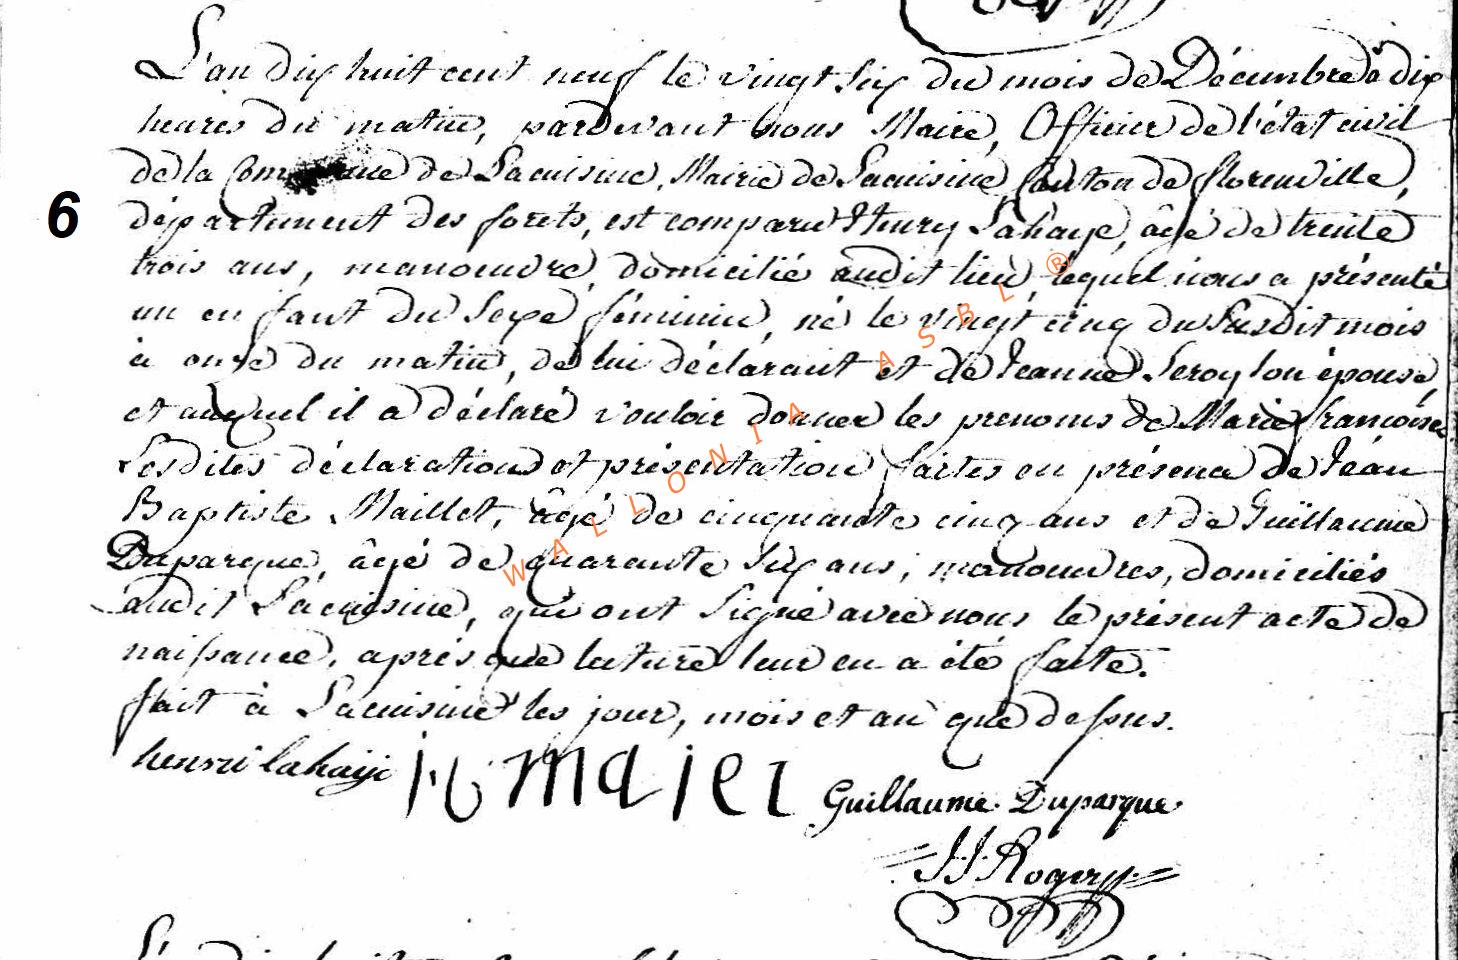 L'an dix huit cent neuf le vingt six du mois de Décembre à dix
heures du matin, pardevant nous Maire, Officier de l'état civil
de la Commune de Lacuisine, Mairie de Lacuisine Canton de florenville,
6
département des forets, est comparu Henry Lahaye, âgé de trente
trois ans, manoeuvre, domicilié audit lieu, lequel nous a présenté
un enfant du sexe féminin, né le vingt cinq du susdit mois
à onze du matin, de lui déclarant et de Jeanne Leroy son épouse,
et auquel il a déclaré vouloir donner les prenoms de Marie françoise
Lesdites déclarations et présentation faites en présence de Jean
Baptiste Maillet, âgé de cinquante cinq ans et de Guillaume
Duparque, âgé de quarante six ans, manoeuvres, domiciliés
audit Lacuisine, qui ont signé avec nous le présent acte de
naissance, après que lecture leur en a été faite.
fait à Lacuisine les jour, mois et an que dessus.
henri lahaye
maiet
Guillaume Duparque
J J Rogery
WALLONIA ASBL ®